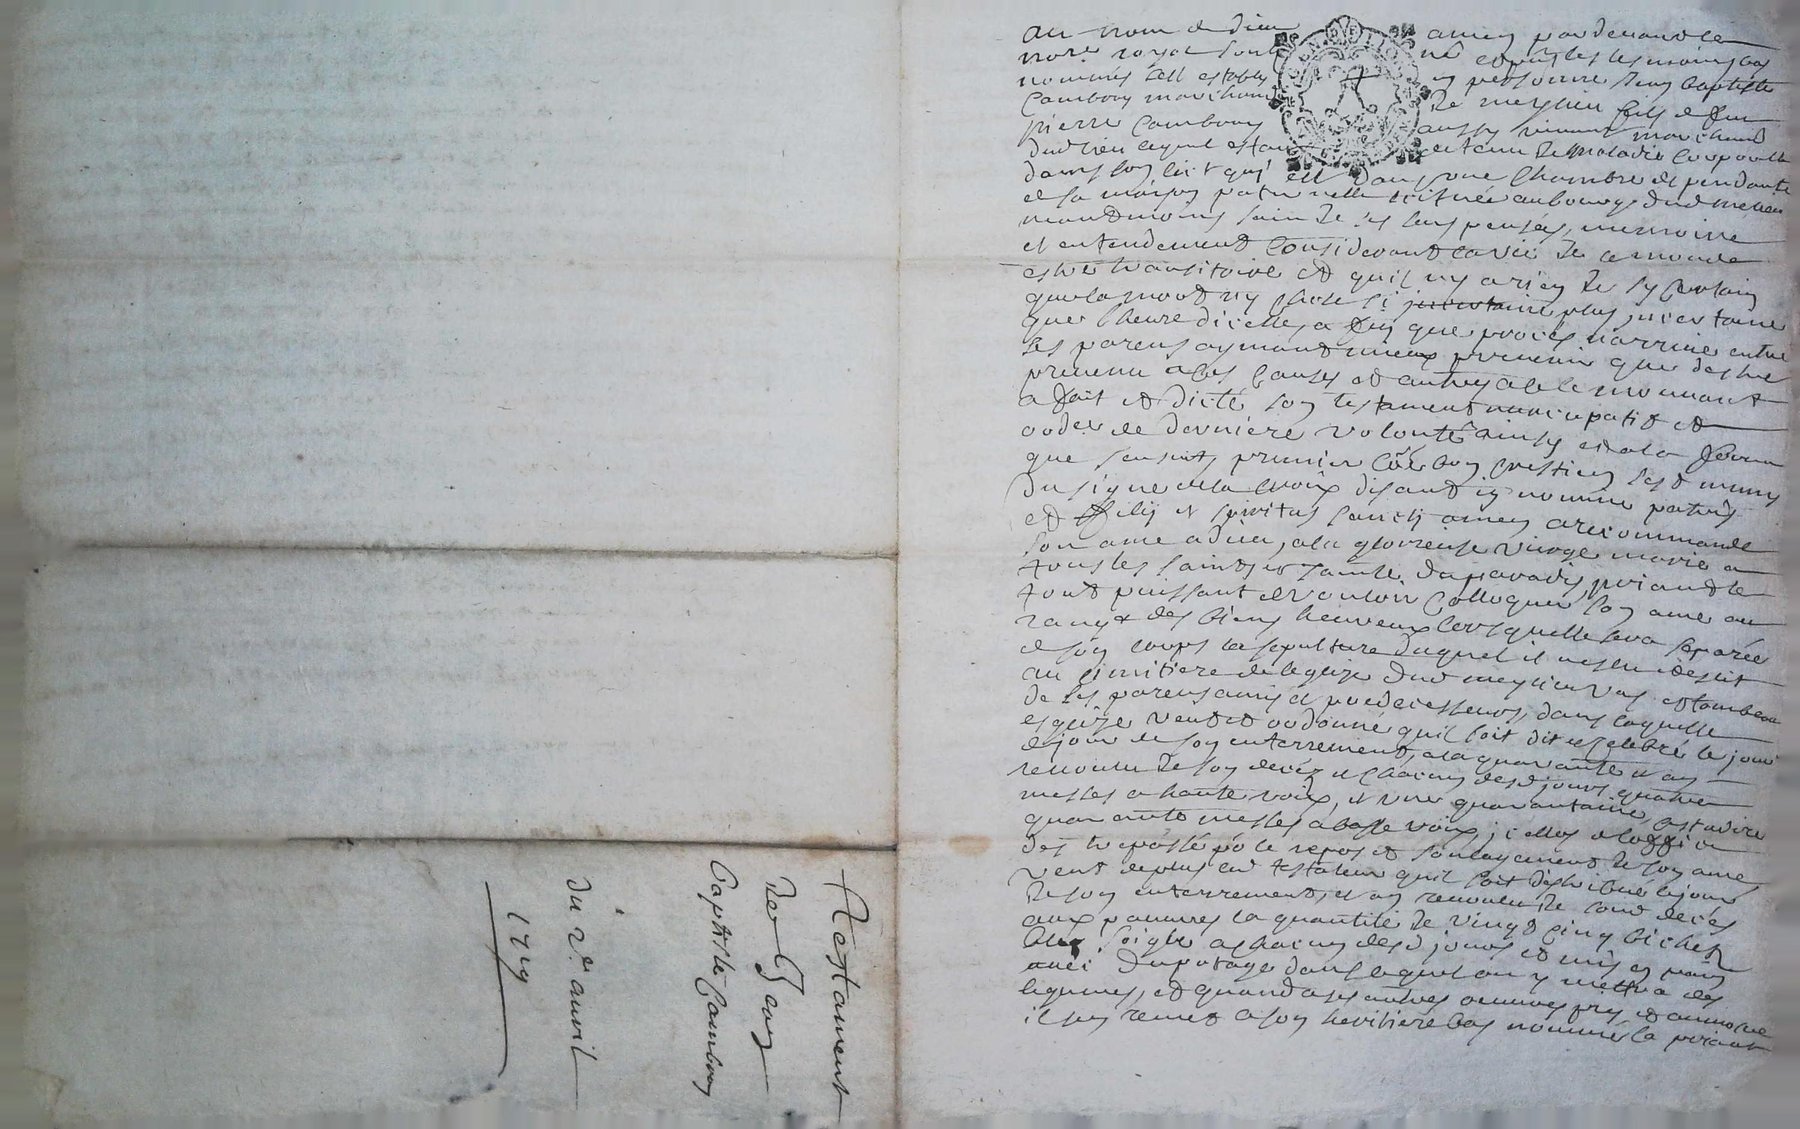 au nom de Dieu amen par devant le
no.re royal soub.né et pnts les tesmoins bas
nommés cest estably en personne Jean baptiste
Cambon marchand de meyrieu fils de feu
pierre Cambon aussy vivant marchand
dud lieu lequel estant detenu de maladie corporelle
dans son lict qui est dans une chambre dependante
de sa maison paternelle scituée au bourg dud
neantmoins sain de ses sens pensés, memoire
et entendement considerant la vie de ce monde
estre transitoire et quil ny a rien de sy certain
que la mort ny chose si plus incertaine
que lheure dicelle, a fin que procès narrive entre
ses parens aymant mieux prevenir que destre
prevenu a ces causes et autres a ce le mouvant
a fait et dicté son testament nuncupatif et
ordre de derniere volonté ainsy et a la forme
que sensuit, premier comme bon crestien sest muny
du signe de la croix disant in nomine patris
et filij et spiritus sancti amen a recommandé
son ame a dieu, a la glorieuse vierge marie a
tous les saints et sainte du paradis, priant le
tout puissant de vouloir colloquer son ame au
rang des biens heureux lors quelle sera separée
de son corps la sepulture duquel il
au cimitiere de leglize dud meyrieu vas et tombeau
de ses parens amis et predecesseurs, dans laquelle
esglize veut et ordonne quil soit dit et celebré le jour
de jour de son enterrement, a la quarante et an
revolu de son decez et chacun desd jours quatre
messes a haute voix, et une quarantaine cest a dire
quarante messes a basse voix, icelles
des trepassé po.r le repos et soulagement de son ame
veut de plus led testateur quil soit distribué le jour
de son enterrement, et an revolu de sond decès
aux pauvres la quantité de vingt cinq bichets
bled soigle a chacun desd jours et mis en pain
avec du potage dans lequel on y mettra des
legumes, et quand a ses autres œuvres pies et aumosne
il sen remet a son heritiere bas nommée la priant
Testament
de Jean
Baptiste Cambon
du 2e avril
1719